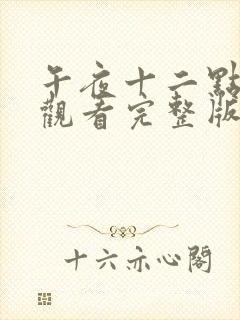 午夜十二點
觀看完整版
十六亦心閣